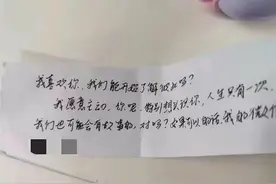 我喜欢你，我们能开始了解彼此吗？
我愿意主动，你呢，特别想认识你，人生只有一次，
我们也可能会有故事的，对吗？如果可以的话，我的